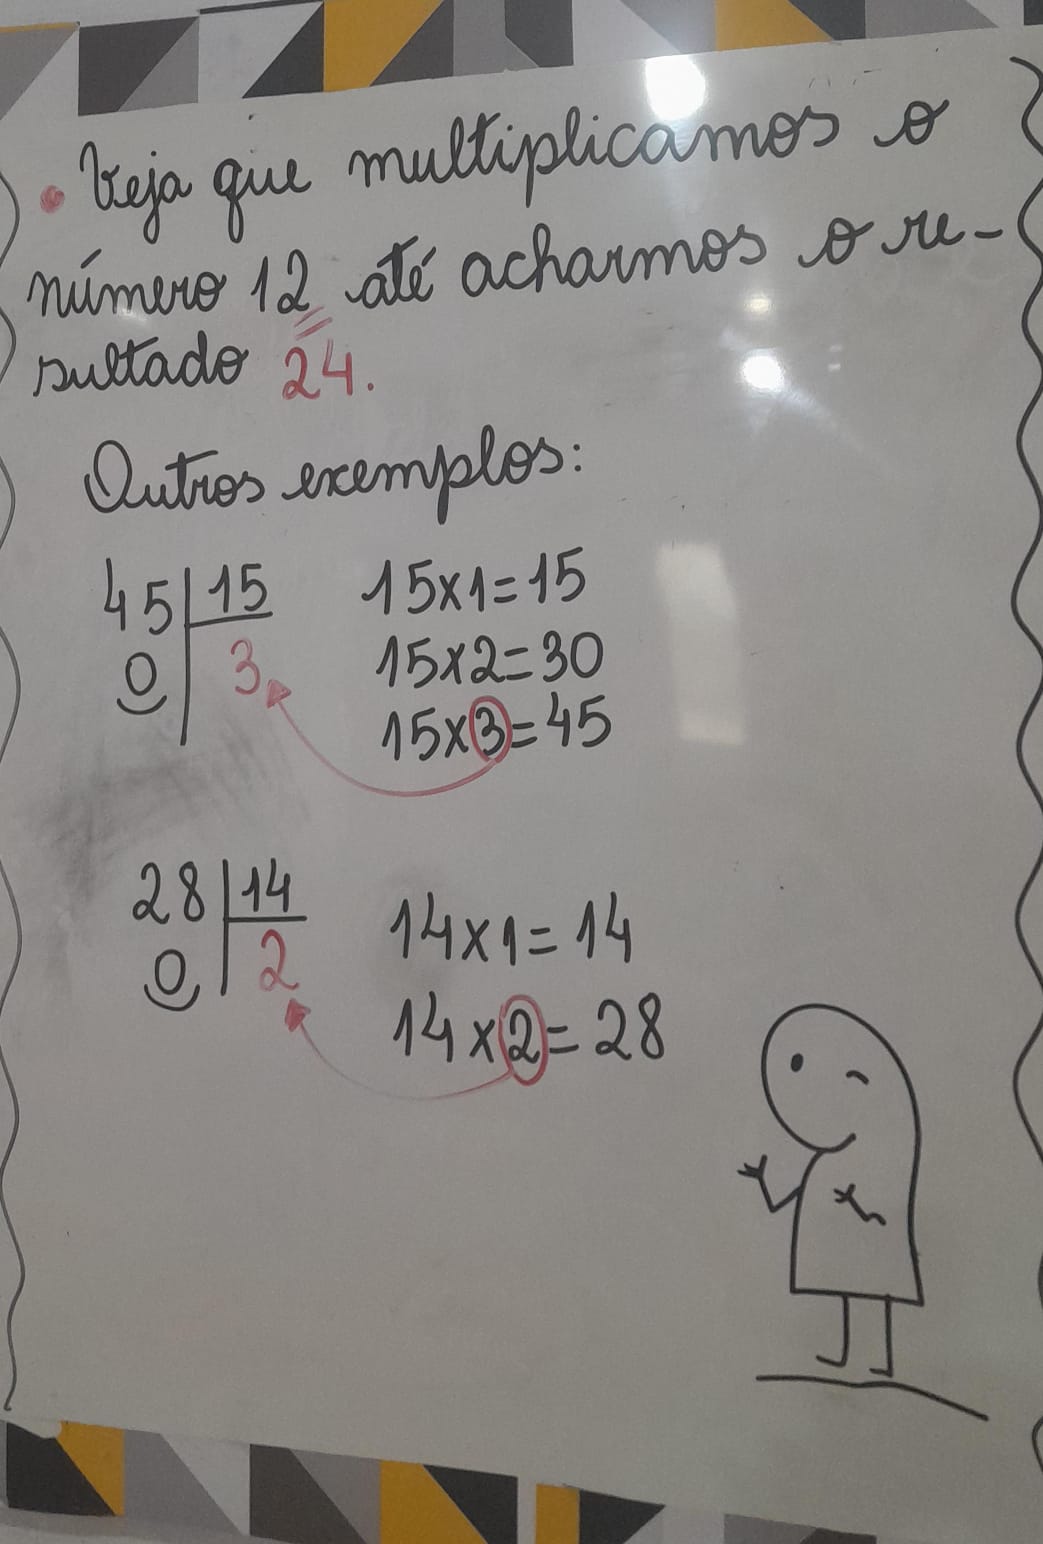 • Veja que multiplicamos o
número 12 até acharmos o re-
sultado 24.
Outros exemplos:
45 | 15
0 | 3
15x1=15
15x2=30
15x3=45
28 | 14
0 | 2
14x1=14
14x2=28